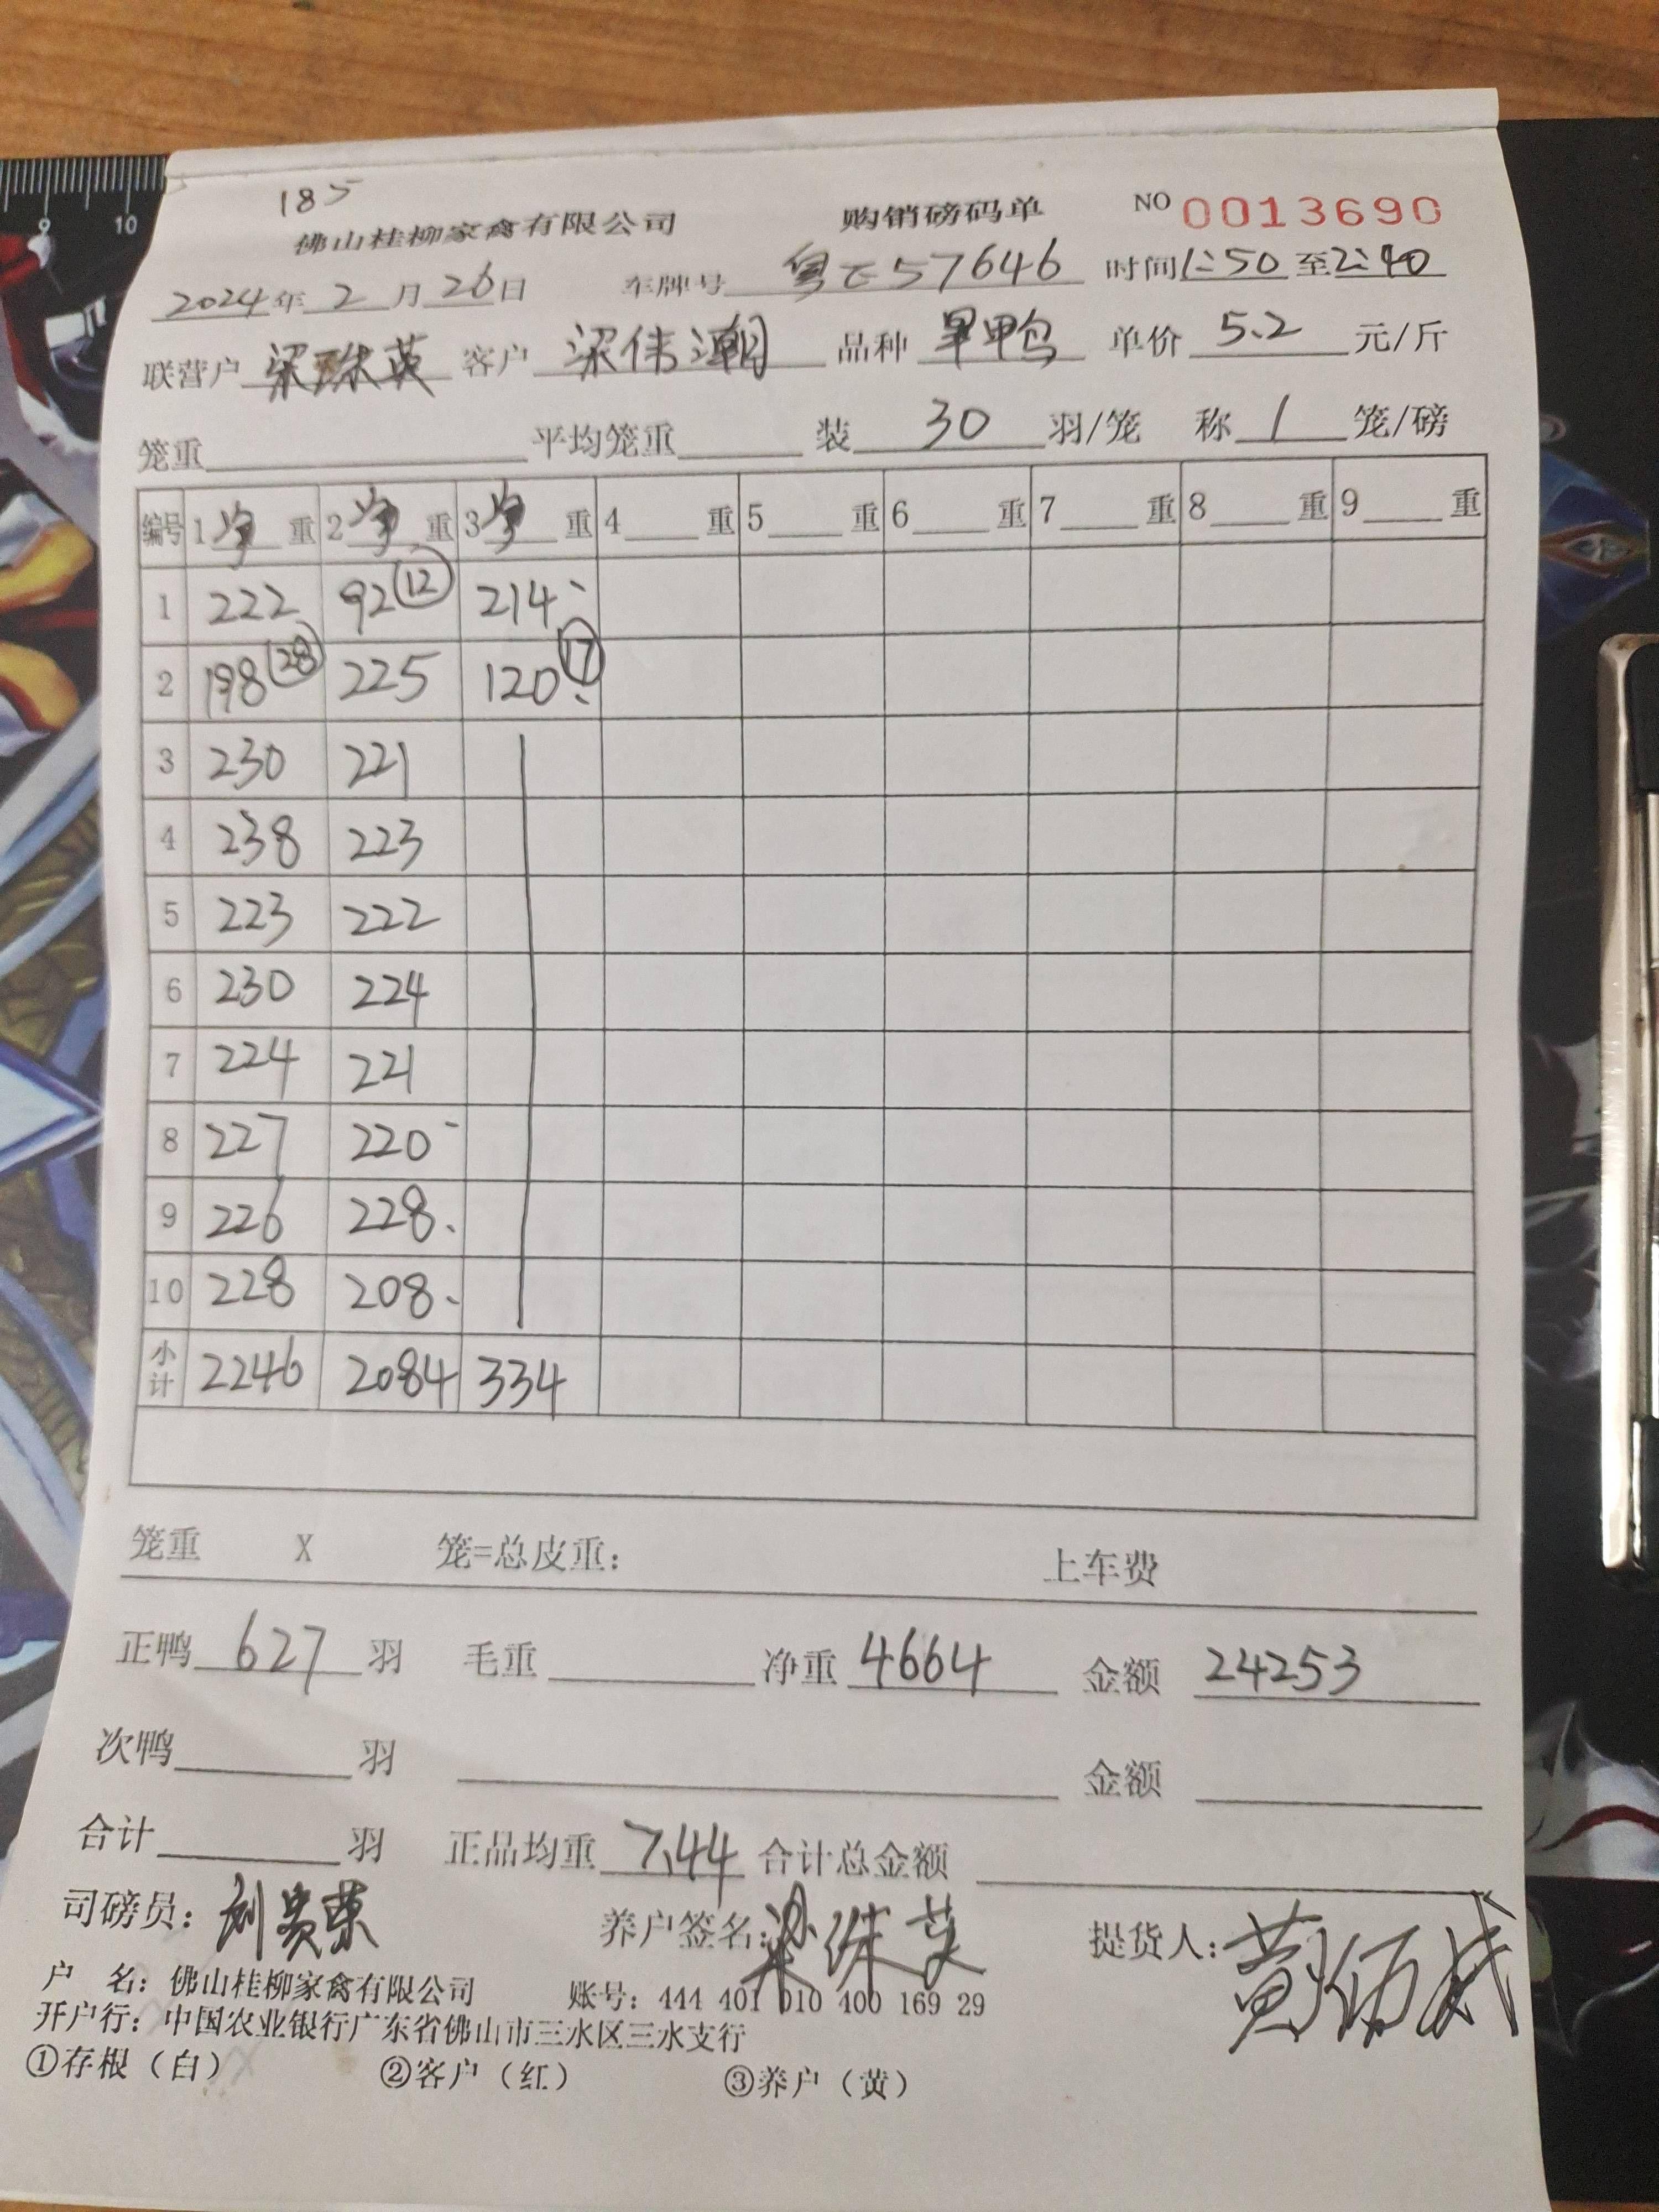 185
佛山桂柳家禽有限公司 购销磅码单 NO 0013690
2024年 2 月 26 日 车牌号 粤E57646 时间 1:50 至 2:40
联营户 梁珠英 客户 梁伟潮 品种 旱鸭 单价 5.2 元/斤
笼重 平均笼重 装 30 羽/笼 称 1 笼/磅
编号 1 净 重 2 净 重 3 净 重 4 重 5 重 6 重 7 重 8 重 9 重
1 222 92 (12) 214
2 198 (28) 225 120 (17)
3 230 221
4 238 223
5 223 222
6 230 224
7 224 221
8 227 220
9 226 228
10 228 208
小计 2246 2084 334
笼重 X 笼=总皮重: 上车费
正鸭 627 羽 毛重 净重 4664 金额 24253
次鸭 羽 金额
合计 羽 正品均重 7.44 合计总金额
司磅员: 刘贵荣 养户签名: 梁珠英 提货人: 黄
户 名: 佛山桂柳家禽有限公司 账号: 444 401 010 400 169 29
开户行: 中国农业银行广东省佛山市三水区三水支行
①存根（白） ②客户（红） ③养户（黄）
9 10